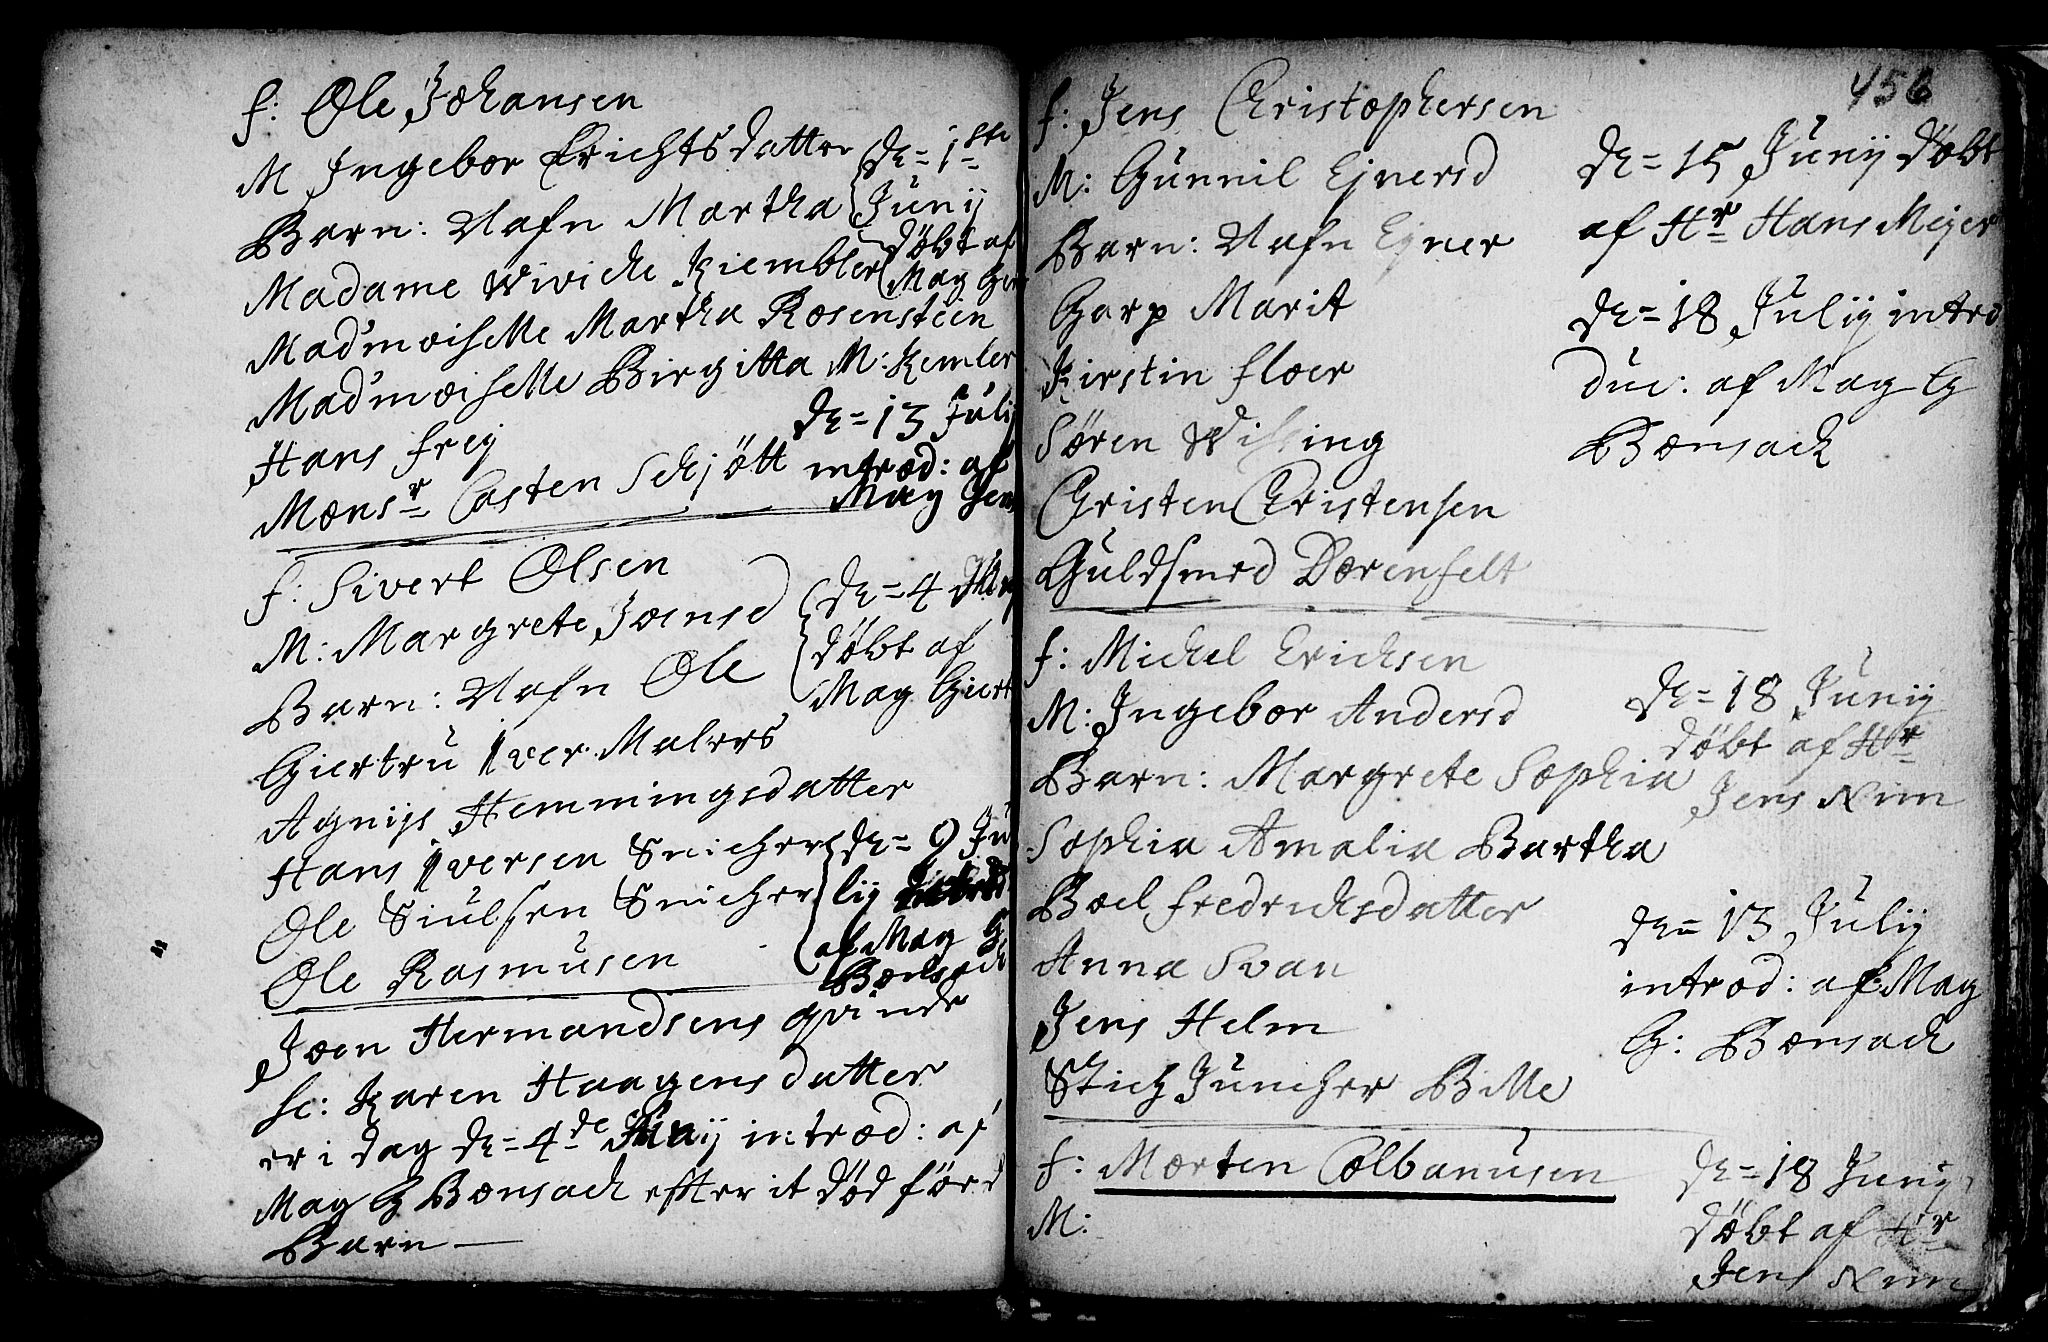 f: Ole Johansen
M Ingebor Erichsdatter
Barn: Nafn Martha
dn = 1ste
Junij
døbt af
Mag Gier
Madame Wiviche Kiembler
Mad'moiselle Martha Rosensteen
Mad'moiselle Birgitta M: Kemler
Hans Frey
Monsr Casten Schjøtt
dn = 13 Julij
introd: af
Mag Jens
f: Sivert Olsen
M: Margrete Joensd
Barn: Nafn Ole
dn = 4
døbt af
Mag Giert
Giertru Iver Malers
Agnijs Hemmingsdatter
Hans Iversen Snicher
Ole Siulsen Snicher
Ole Rasmusen
dn = 9 Ju
lij introd
af Mag G
Bonsach
Joen Hermandsens qvinde
sc: Karen Haagensdatter
er i dag dn = 4de introd: af
Mag G Bonsach efter it død fød
Barn
456
f: Jens Christophersen
M: Gunnil Ejnersd
Barn: Nafn Ejner
Garp Marit
Kirstin Floer
Søren Wissing
Christen Christensen
Guldsmed Dorenfelt
dn = 15 Junij døbt
af Hr Hans Mejer
dn = 18 Julij intro
duc: af Mag G
Bonsach
f: Michel Erichsen
M: Ingebor Andersd
Barn: Margrete Sophia
Sophia Amalia Bartha
Boel Fredrichsdatter
Anna Svan
Jens Helm
Stich Juncher Bille
dn = 18 Junij
døbt af Hr
Jens
dn = 13 Julij
introd: af Mag
G: Bonsach
f: Morten Colbanusen
M:
dn = 18 Junij
døbt af Hr
Jens